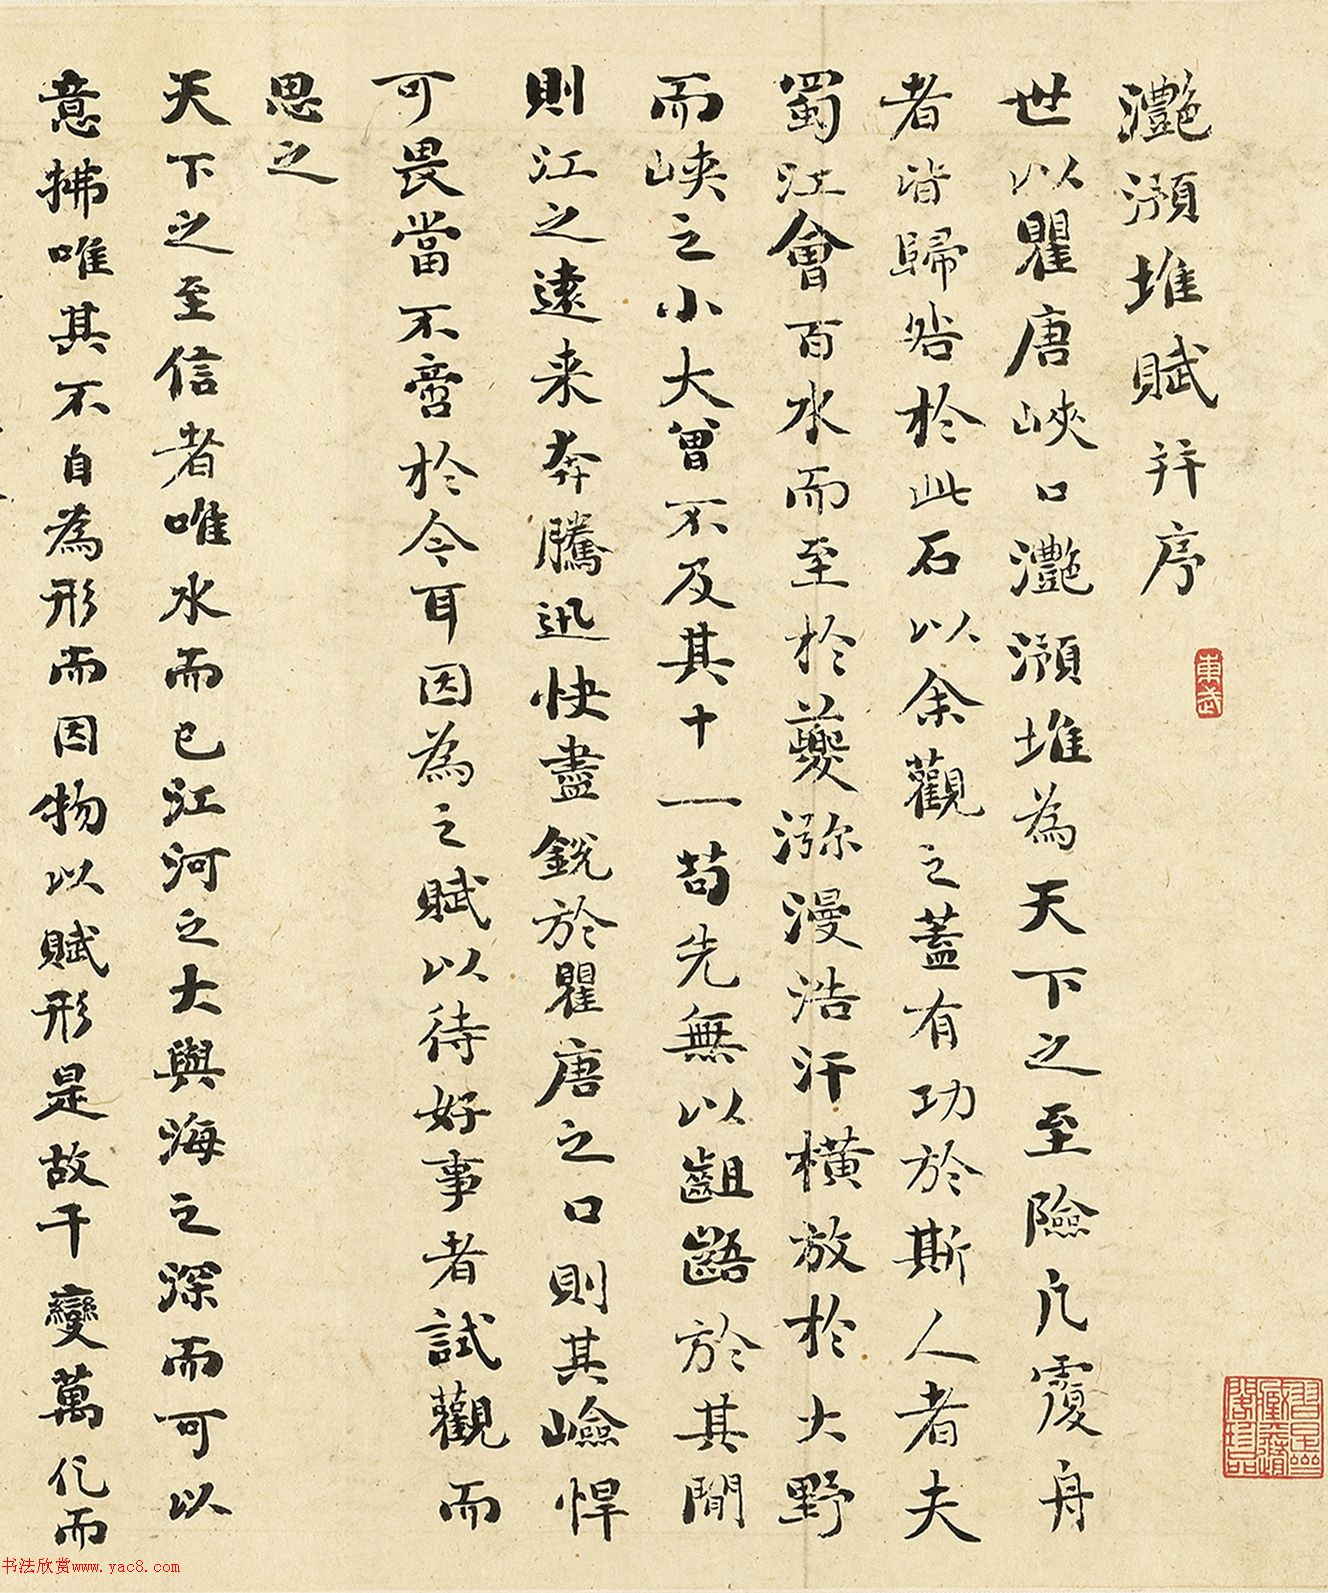 灩澦堆賦并序
世以瞿唐峽口灩澦堆為天下之至險凡覆舟
者皆歸咎於此石以余觀之蓋有功於斯人者夫
蜀江會百水而至於夔瀰漫浩汗橫放於大野
而峽之小大曾不及其十一苟先無以齟齬於其間
則江之遠来奔騰迅快盡銳於瞿唐之口則其嶮悍
可畏當不啻於今耳因為之賦以待好事者試觀而
思之
天下之至信者唯水而已江河之大與海之深而可以
意拂唯其不自為形而因物以賦形是故千變萬化而
東武
書法欣赏www.yac8.com